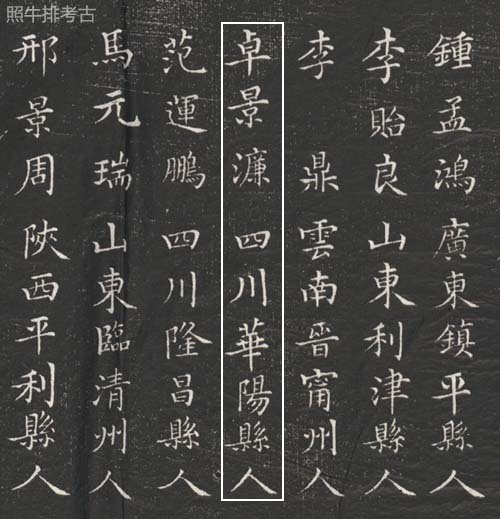 照牛排考古
鍾孟鴻廣東鎮平縣人
李貽良山東利津縣人
李鼎雲南晉甯州人
卓景濂四川華陽縣人
范運鵬四川隆昌縣人
馬元瑞山東臨清州人
邢景周陝西平利縣人